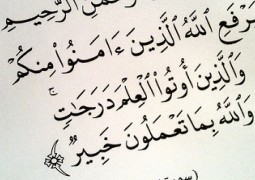 الرَّحْمَنِ الرَّحِيمِ
يَرْفَعِ اللَّهُ الَّذِينَ ءَامَنُوا مِنكُمْ
وَالَّذِينَ أُوتُوا الْعِلْمَ دَرَجَاتٍ ۚ
وَاللَّهُ بِمَا تَعْمَلُونَ خَبِيرٌ